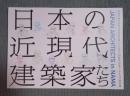 日本の
近現代
建築家たち
JAPAN ARCHITECTS in NAMA